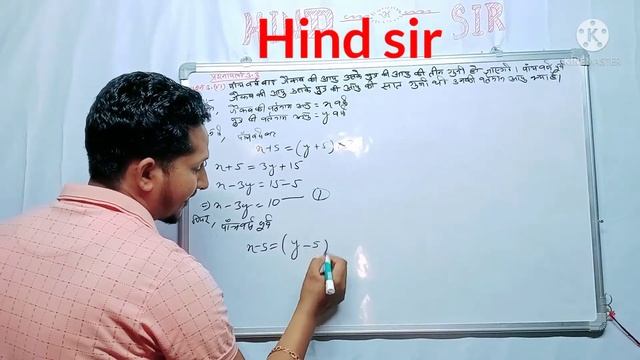 HIND SIR
Hind sir
K
KINEMASTER
प्रश्नावली 3.3
पाँच वर्ष बाद जैकब की आयु उसके पुत्र की आयु की तीन गुनी हो जाएगी। पाँच वर्ष पूर्व
जैकब की आयु उसके पुत्र की आयु की सात गुनी थी। उनकी वर्तमान आयु क्या है।
जैकब की वर्तमान आयु = x वर्ष
पुत्र की वर्तमान आयु = y वर्ष
पाँच वर्ष बाद
x+5 = (y+5)×
x+5 = 3y+15
x-3y = 15-5
⇒ x-3y = 10 — ①
फिर, पाँच वर्ष पूर्व
x-5 = (y-5)